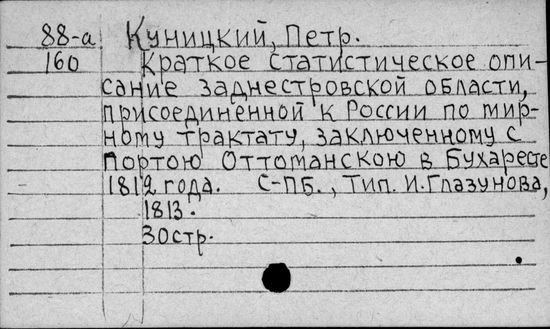 88-а Куницкий, Петр.
160 Краткое статистическое опи-
сание заднестровской области,
присоединенной к России по мир-
ному трактату, заключенному с
Портою Оттоманскою в Бухаресте
1812 года. С-ПБ., Тип. И. Глазунова,
1813.
30стр.